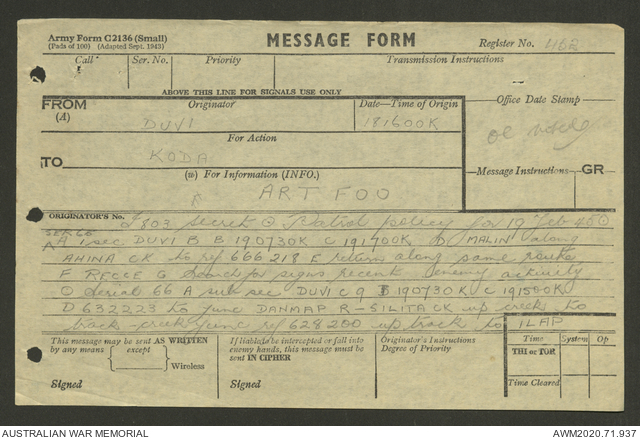 Army Form C2136 (Small)
(Pads of 100) (Adapted Sept. 1943)
MESSAGE FORM
Register No. 462
Call
Ser. No.
Priority
Transmission Instructions
ABOVE THIS LINE FOR SIGNALS USE ONLY
FROM
(A)
Originator
DUVI
Date—Time of Origin
181600K
Office Date Stamp
For Action
TO
KODA
(W) For Information (INFO.)
Message Instructions
GR
ART FOO
ORIGINATOR'S No.
I 803 secret ⊙ Patrol policy for 19 Feb 45 ⊙
SER 65
A 1 sec DUVI B B 190730K C 191700K D MALIN along
AHINA CK to ref 666218 E return along same route
F RECCE G Search for signs recent enemy activity
⊙ serial 66 A sub sec DUVI C 9 B 190730K C 191500K
D 632223 to junc DANMAP R - SILITA CK up creek to
track - creek junc ref 628200 up track to ILAP
This message may be sent AS WRITTEN
by any means except
Wireless
Signed
If liable to be intercepted or fall into
enemy hands, this message must be
sent IN CIPHER
Signed
Originator's Instructions
Degree of Priority
Time
System
Op
THI or TOR
Time Cleared
AUSTRALIAN WAR MEMORIAL
AWM2020.71.937